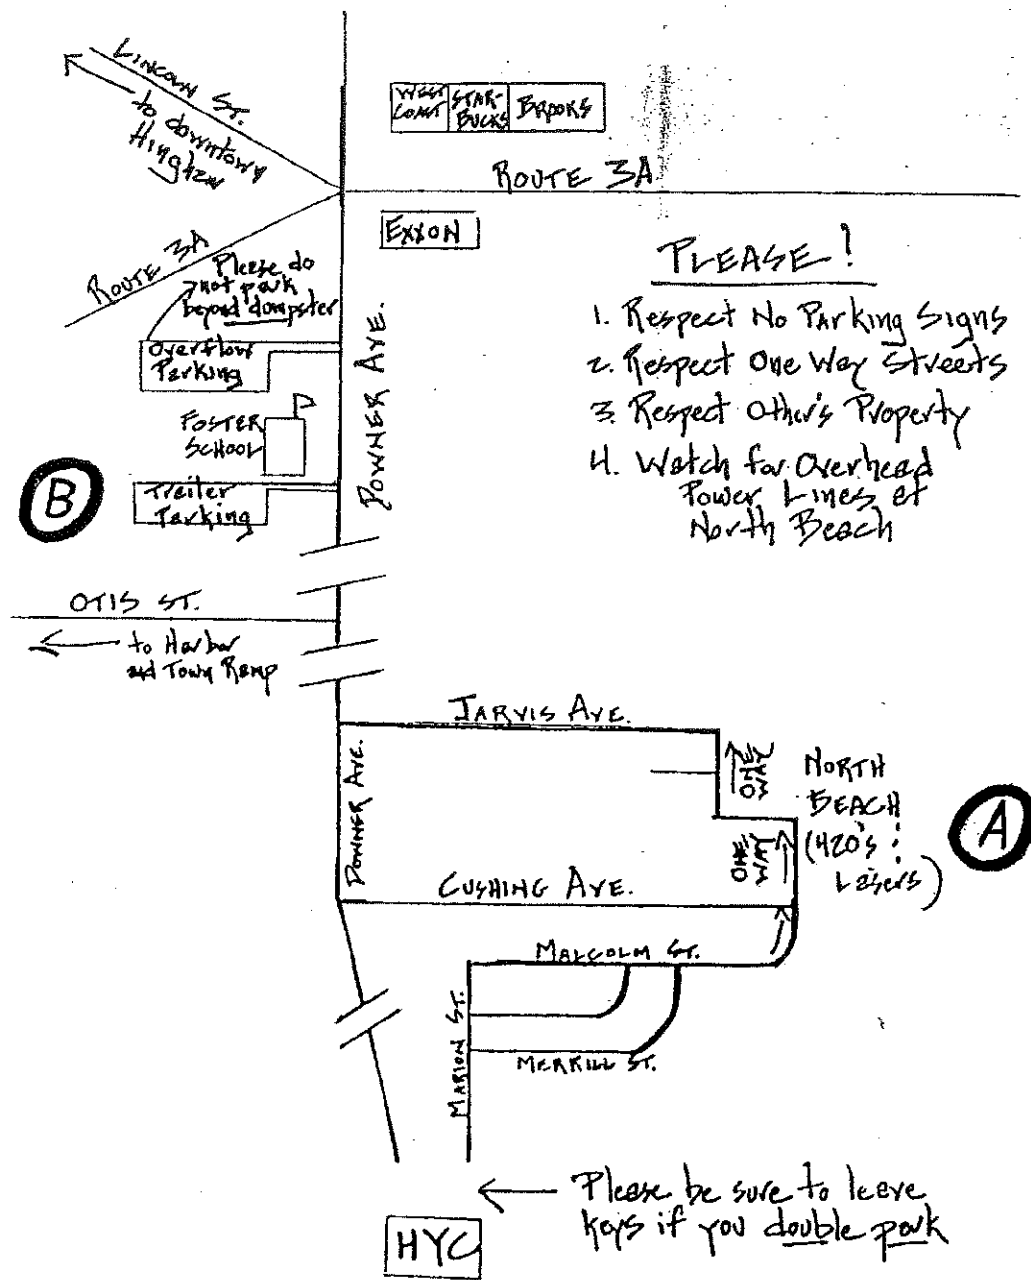 LINCOLN ST.
to downtown
Hingham
WEST
COAST
STAR-
BUCKS
BROOKS
ROUTE 3A
EXXON
ROUTE 3A
Please do
not park
beyond dumpster
Overflow
Parking
FOSTER
SCHOOL
B
Trailer
Parking
DOWNER AVE.
PLEASE!
1. Respect No Parking Signs
2. Respect One Way Streets
3. Respect Other's Property
4. Watch for Overhead
Power Lines at
North Beach
OTIS ST.
to Harbor
and Town Ramp
JARVIS AVE.
DOWNER AVE.
ONE
WAY
NORTH
BEACH
(420's &
Lasers)
A
ONE
WAY
CUSHING AVE.
MALCOLM ST.
MARION ST.
MERRILL ST.
Please be sure to leave
keys if you double park
HYC